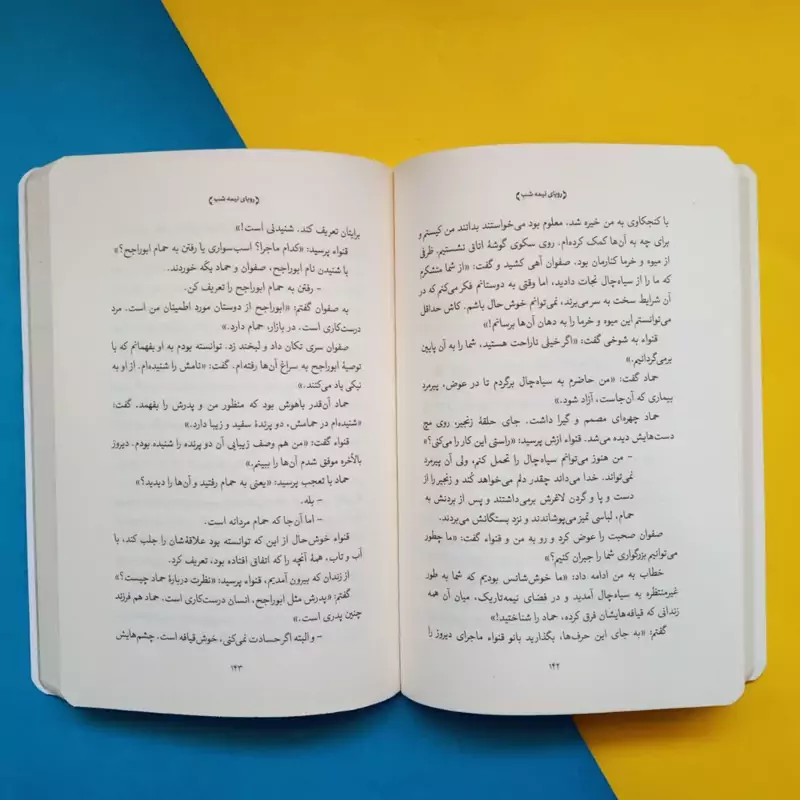 ﴿رویای نیمه شب﴾
با کنجکاوی به من خیره شد. معلوم بود می‌خواستند بدانند من کیستم و
برای چه به آن‌ها کمک کرده‌ام. روی سکوی گوشهٔ اتاق نشستیم. ظرفی
از میوه و خرما کنارمان بود. صفوان آهی کشید و گفت: «از شما متشکرم
که ما را از سیاه‌چال نجات دادید، اما وقتی به دوستانم فکر می‌کنم که در
آن شرایط سخت به سر می‌برند، نمی‌توانم خوش‌حال باشم. کاش حداقل
می‌توانستم این میوه و خرما را به دهان آن‌ها برسانم!»
قنواء به شوخی گفت: «اگر خیلی ناراحت هستید، شما را به آن پایین
برمی‌گردانیم.»
حماد گفت: «من حاضرم به سیاه‌چال برگردم تا در عوض، پیرمرد
بیماری که آن‌جاست، آزاد شود.»
حماد چهره‌ای مصمم و گیرا داشت. جای حلقهٔ زنجیر، روی مچ
دست‌هایش دیده می‌شد. قنواء ازش پرسید: «راستی این کار را می‌کنی؟»
– من هنوز می‌توانم سیاه‌چال را تحمل کنم، ولی آن پیرمرد
نمی‌تواند. خدا می‌داند چقدر دلم می‌خواهد کُند و زنجیر را از
دست و پا و گردن لاغرش برمی‌داشتند و پس از بردنش به
حمام، لباسی تمیز می‌پوشاندند و نزد بستگانش می‌بردند.
صفوان صحبت را عوض کرد و رو به من و قنواء گفت: «ما چطور
می‌توانیم بزرگواری شما را جبران کنیم؟»
خطاب به من ادامه داد: «ما خوش‌شانس بودیم که شما به طور
غیرمنتظره به سیاه‌چال آمدید و در فضای نیمه‌تاریک، میان آن همه
زندانی که قیافه‌هایشان فرق کرده، حماد را شناختید!»
گفتم: «به جای این حرف‌ها، بگذارید بانو قنواء ماجرای دیروز را
۱۴۲
﴿رویای نیمه شب﴾
برایتان تعریف کند. شنیدنی است!»
قنواء پرسید: «کدام ماجرا؟ اسب‌سواری یا رفتن به حمام ابوراجح؟»
با شنیدن نام ابوراجح، صفوان و حماد یکّه خوردند.
– رفتن به حمام ابوراجح را تعریف کن.
به صفوان گفتم: «ابوراجح از دوستان مورد اطمینان من است. مرد
درست‌کاری است. در بازار، حمام دارد.»
صفوان سری تکان داد و لبخند زد. توانسته بودم به او بفهمانم که با
توصیهٔ ابوراجح به سراغ آن‌ها رفته‌ام. گفت: «نامش را شنیده‌ام. از او به
نیکی یاد می‌کنند.»
حماد آن‌قدر باهوش بود که منظور من و پدرش را بفهمد. گفت:
«شنیده‌ام در حمامش، دو پرندهٔ سفید و زیبا دارد.»
قنواء گفت: «من هم وصف زیبایی آن دو پرنده را شنیده بودم. دیروز
بالأخره موفق شدم آن‌ها را ببینم.»
حماد با تعجب پرسید: «یعنی به حمام رفتید و آن‌ها را دیدید؟»
– بله.
– اما آن‌جا که حمام مردانه است.
قنواء خوش‌حال از این که توانسته بود علاقه‌شان را جلب کند، با
آب و تاب، همهٔ آنچه را که اتفاق افتاده بود، تعریف کرد.
از زندان که بیرون آمدیم، قنواء پرسید: «نظرت دربارهٔ حماد چیست؟»
گفتم: «پدرش مثل ابوراجح، انسان درست‌کاری است. حماد هم فرزند
چنین پدری است.»
– و البته اگر حسادت نمی‌کنی، خوش‌قیافه است. چشم‌هایش
۱۴۳